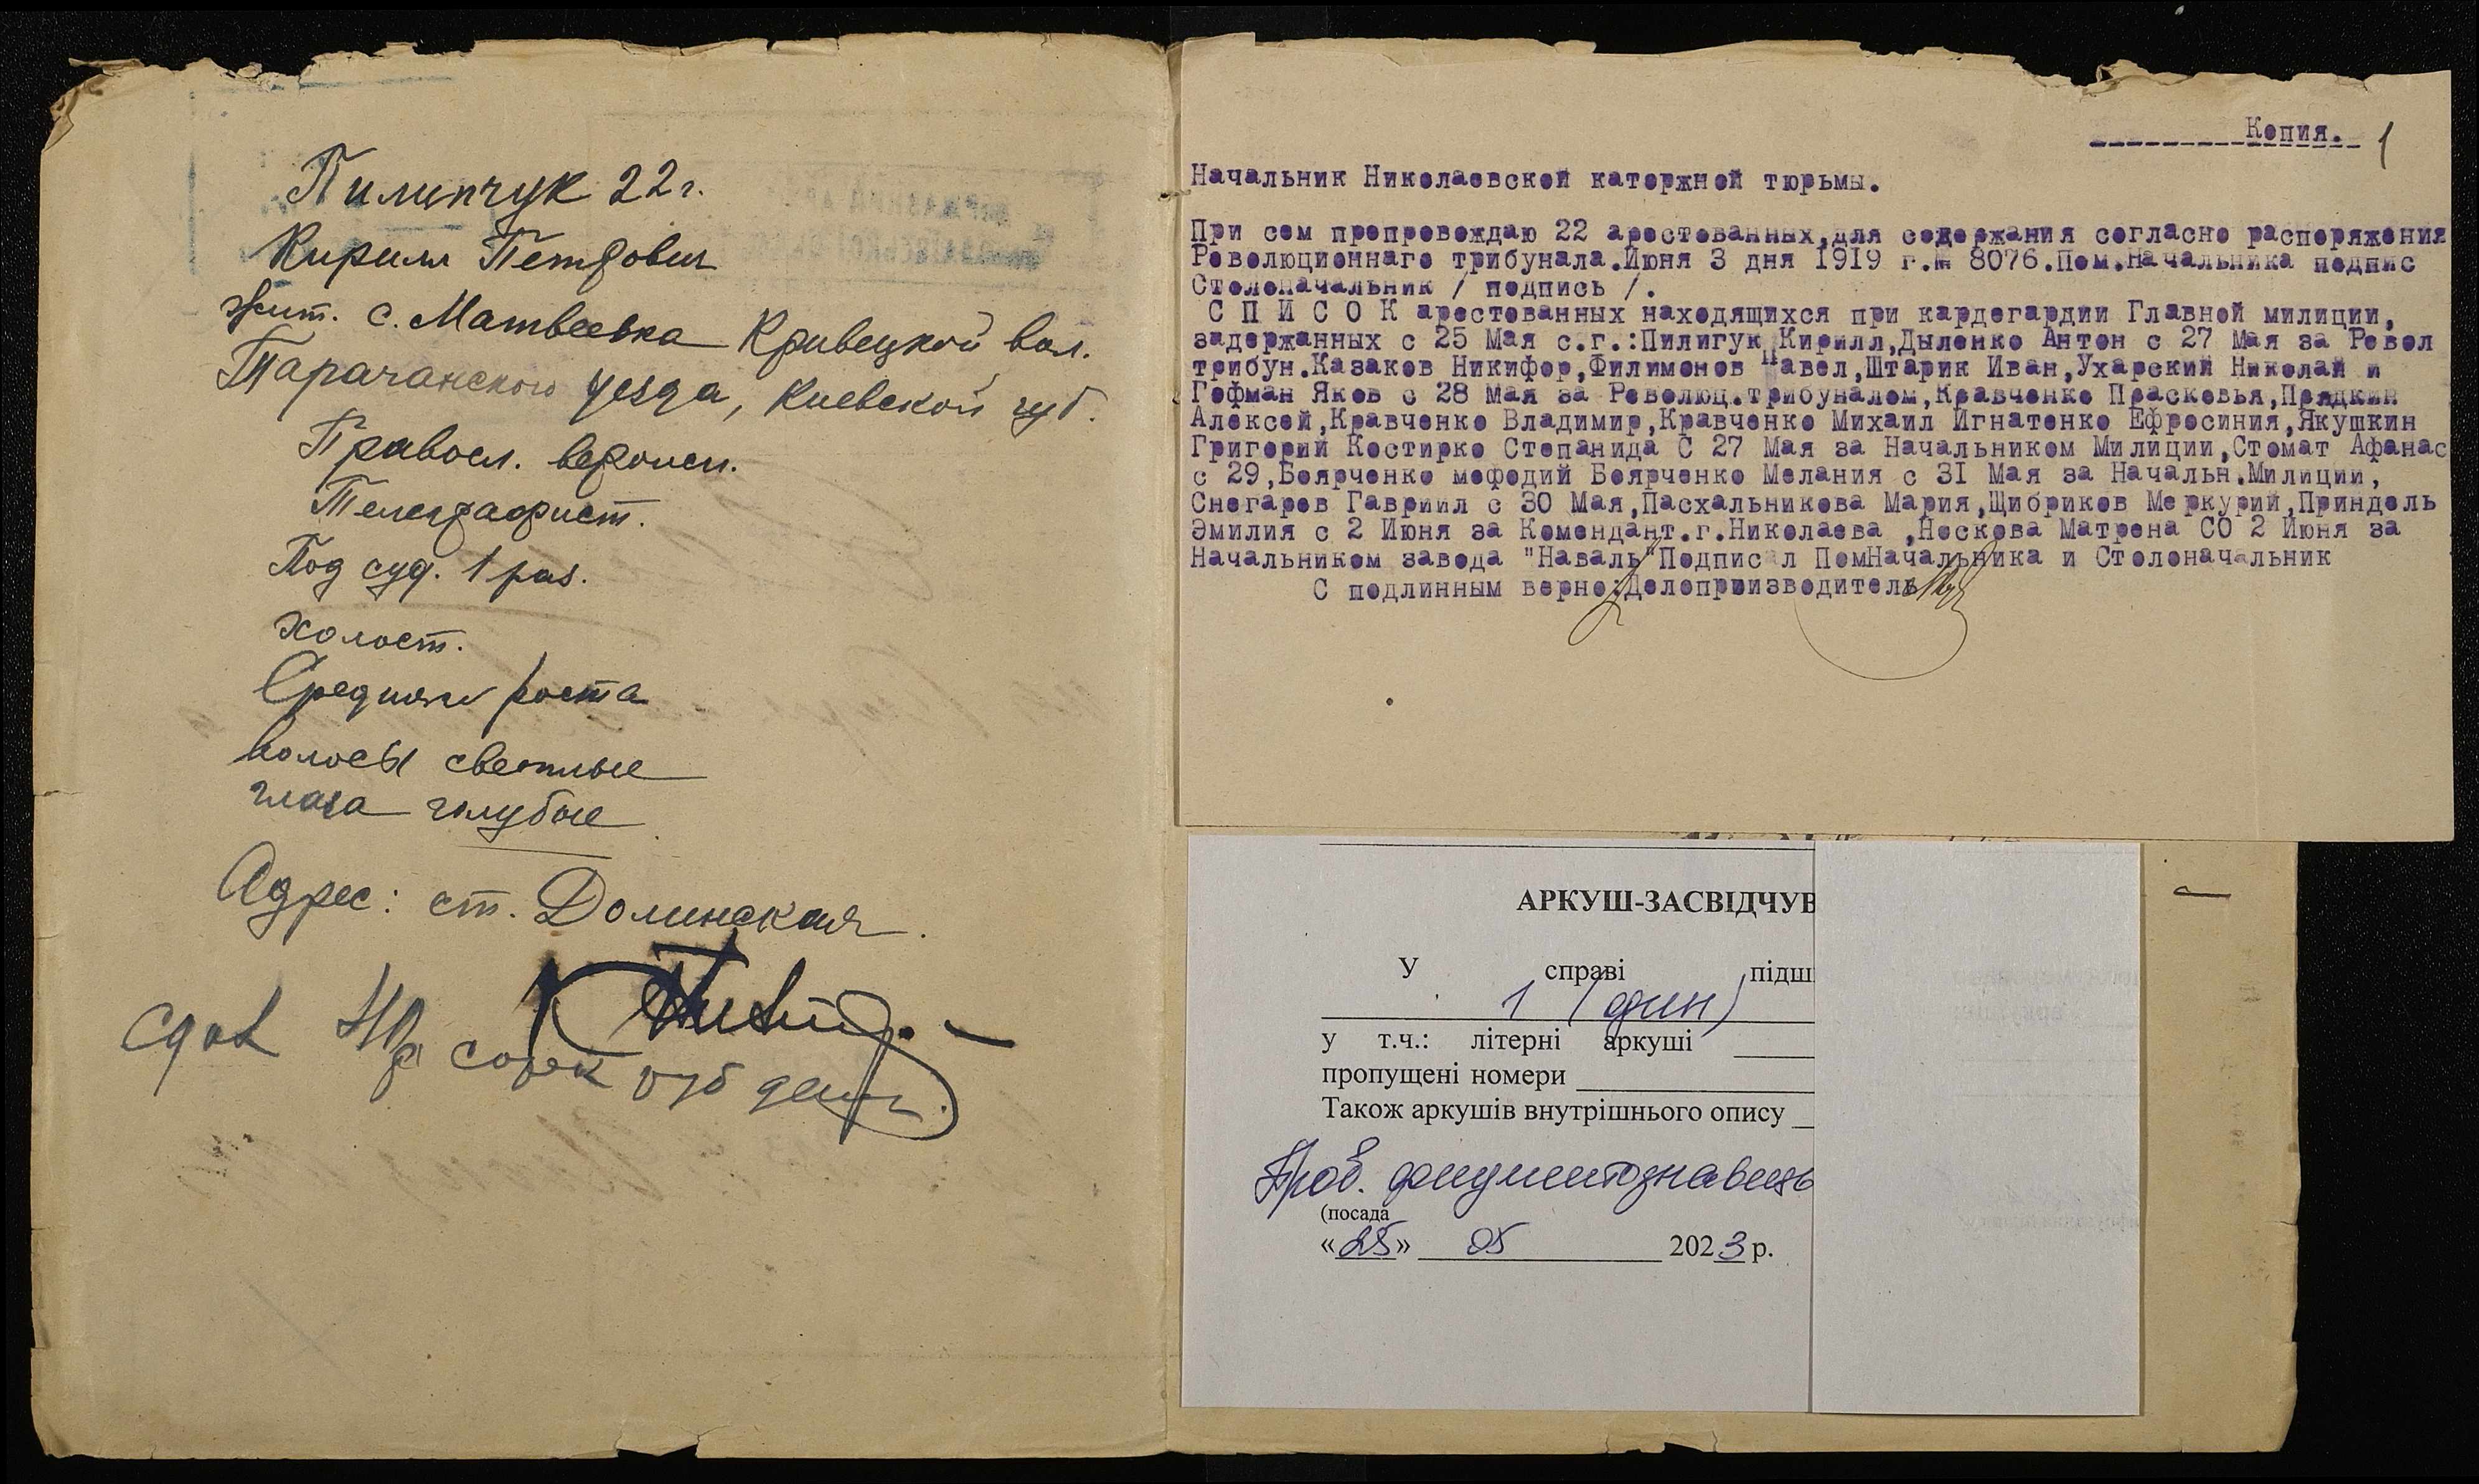 Пилипчук 22 г.
Кирилл Петрович
жит. с. Матвеевка Кривецкой вол.
Таращанского уезда, Киевской губ.
Правосл. вероисп.
Телеграфист.
Под суд. 1 раз.
холост.
Средняго роста
волосы светлые
глаза голубые
Адрес: ст. Долинская.
сдал 40 р сорок руб денег.
Копия. 1
Начальник Николаевской каторжной тюрьмы.
При сем препровождаю 22 арестованных,для содержания согласно распоряжения
Революционнаго трибунала.Июня 3 дня 1919 г.№ 8076.Пом.Начальника подпис
Столоначальник / подпись /.
С П И С О К арестованных находящихся при кардегардии Главной милиции,
задержанных с 25 Мая с.г.:Пилигук Кирилл,Дыленко Антон с 27 Мая за Револ
трибун.Казаков Никифор,Филимонов Павел,Штарик Иван,Ухарский Николай и
Гофман Яков с 28 Мая за Революц.трибуналом,Кравченко Прасковья,Прядкин
Алексей,Кравченко Владимир,Кравченко Михаил Игнатенко Ефросиния,Якушкин
Григорий Костирко Степанида С 27 Мая за Начальником Милиции,Стомат Афанас
с 29,Боярченко мефодий Боярченко Мелания с 3I Мая за Начальн.Милиции,
Снегарев Гавриил с 30 Мая,Пасхальникова Мария,Щибриков Меркурий,Приндель
Эмилия с 2 Июня за Комендант.г.Николаева ,Носкова Матрена СО 2 Июня за
Начальником завода "Наваль"Подписал ПомНачальника и Столоначальник
С подлинным верно:Делопроизводитель
АРКУШ-ЗАСВІДЧУВ
У справі підши
1 (один)
у т.ч.: літерні аркуші
пропущені номери
Також аркушів внутрішнього опису
Пров. документознавець
(посада
«25» 05 2023 р.